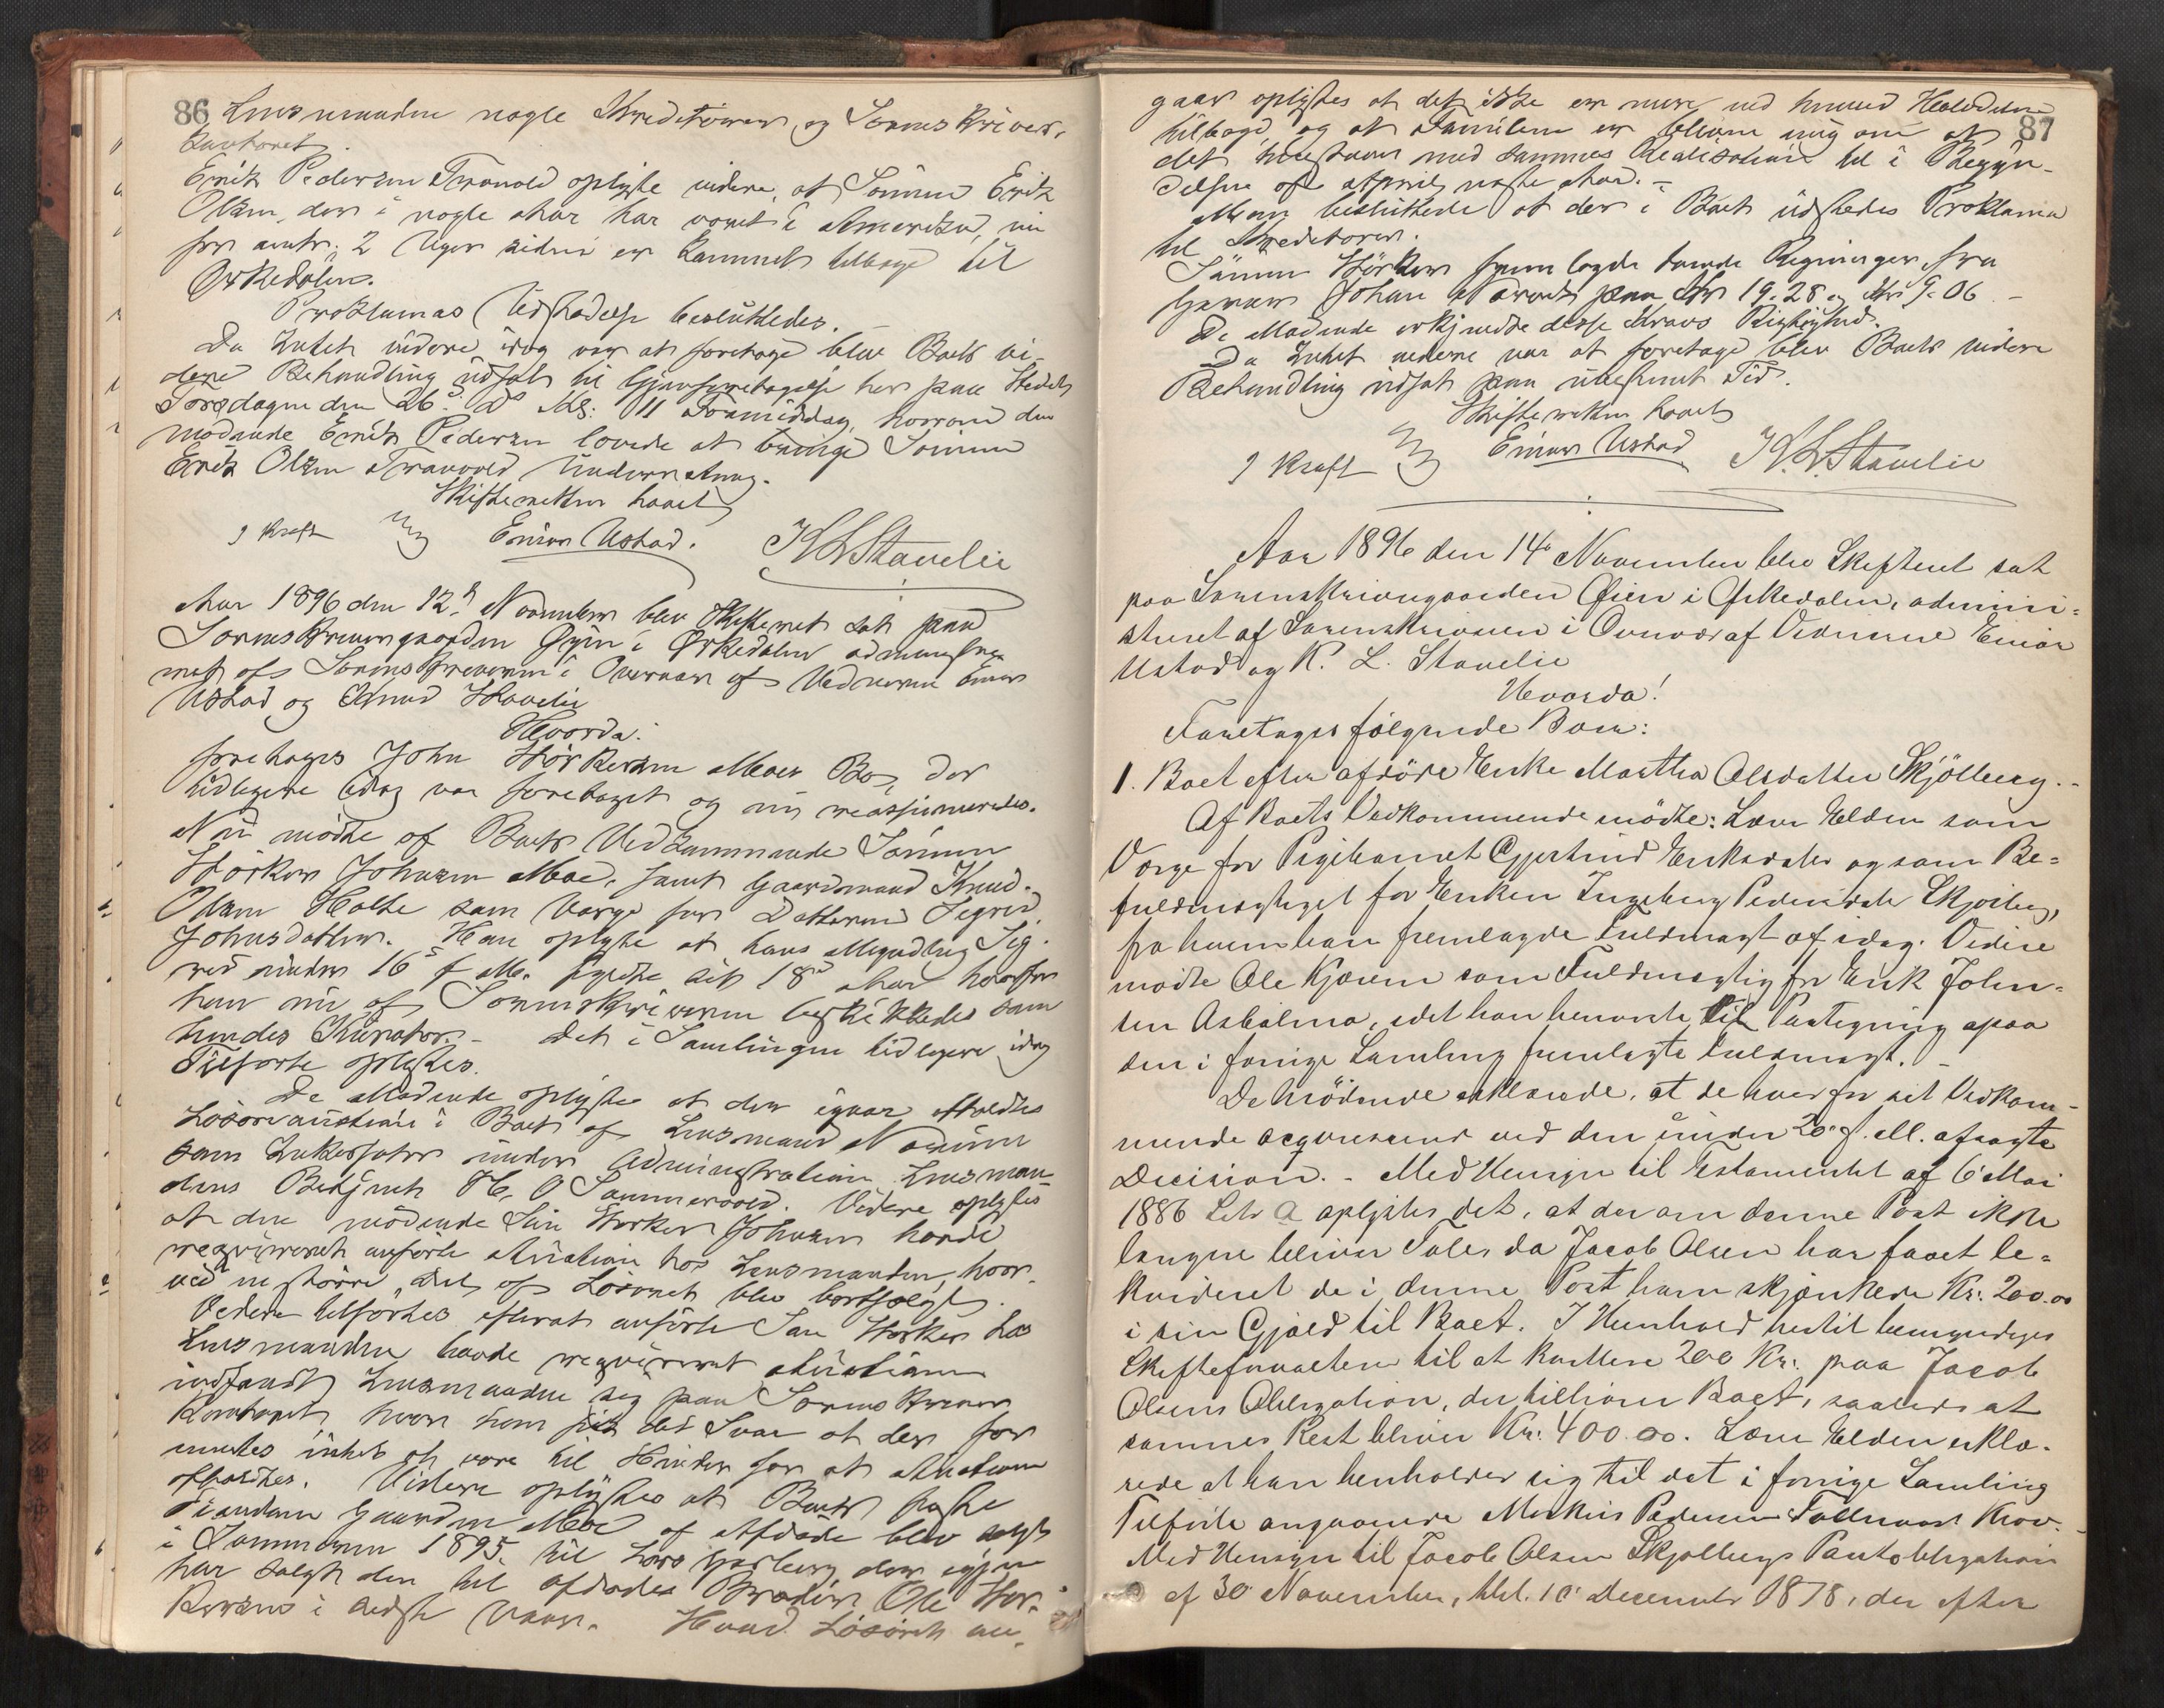 86 Lensmanden nogle Kreditorer og Sorenskriver-
kontoret.
Erik Pedersen Tranvold oplyste videre, at Sönnen Erik
Olsen, der i nogle Aar har været i Amerika, nu
for circa 2 Uger siden er kommet tilbage til
Orkedalen.
Proklamas Udstædelse besluttedes. —
Da Intet videre idag var at foretage blev Boets vi-
dere Behandling udsat til Gjenforetagelse her paa Stedet
Torsdagen den 26de ds Kl: 11 Formiddag, hvorom den
mödende Erik Pedersen lovede at bringe Sönnen
Erik Olsen Tranvold Underretning.
Skifteretten hævet
J Kraft Einar Ustad. K L Stavelie
Aar 1896 den 12te November blev Skifteret sat paa
Sorenskrivergaarden Öyen i Orkedalen administre-
ret af Sorenskriveren i Overvær af Vidnerne Einar
Ustad og Knud Stavelie
Hvorda:
foretoges John Störkersen Moes Bo, der
tidligere idag var foretaget og nu reassumeredes.
Nu mödte af Boets Vedkommende Sönnen
Störker Johnsen Moe, samt Gaardmand Knud
Olsen Holte som Værge for Datteren Sigrid
Johnsdatter. Han oplyste at hans Myndling Sig-
rid under 16de f. M. fyldte sit 18de Aar hvorfor
han nu af Sorenskriveren beskikkedes som
hendes Kurator. — Det i Samlingen tidligere idag
Tilförte oplystes.
De Mödende oplyste at der igaar afholdtes
Lösöreauktion i Boet af Lensmand
som Inkassator under Administration Lensman-
dens Betjent H. O. Sommervold. Videre oplystes
at den mödende Sön Störker Johnsen havde
reqvireret anförte Auktion hos Lensmanden, hvor-
ved en större Del af Lösöret blev bortsolgt.
Videre tilförtes efterat anförte Sön Störker hos
Lensmanden havde reqvireret Auktionen
indfandt Lensmanden sig paa Sorenskriver
Kontoret, hvor han fik det Svar at der for-
mentes intet at være til Hinder for at Auktionen
afholdtes. Videre oplystes at Boets faste
Eiendom Gaarden Moe af Afdöde blev solgt
i Sommeren 1895 til Lars der igjen
har solgt den til afdödes Broder Ole Stör-
kersens i sidste Vaar. Hvad Lösöret an-
87
gaar oplystes at det ikke er mere end hvad
tilbage, og at Familien er bleven enig om at
det henstaar med sammes Realisation til i Begyn-
delsen af April næste Aar. —
Man besluttede at der i Boet udstedes Proklama
til Kreditorer.
Sönnen Störker fremlagde tvende Regninger fra
Garver Johan paa Kr 19.28 og Kr 9.06 —
De Mödende erkjendte disse Kravs Rigtighed.
Da Intet videre var at foretage blev Boets videre
Behandling udsat paa ubestemt Tid.
Skifteretten hævet
J Kraft Einar Ustad K. L Stavelie
Aar 1896 den 14de November blev Skifteret sat
paa Sorenskrivergaarden Öien i Orkedalen, admini-
streret af Sorenskriveren i Overvær af Vidnerne Einar
Ustad og K. L. Stavelie
Hvorda!
Foretages fölgende Boer:
1. Boet efter afdöde Enke Martha Olsdatter Skjölberg. -
Af Boets Vedkommende mödte: Lars Elden som
Værge for Pigebarnet Gjertrud Eriksdatter og som Be-
fuldmægtiget for Enken Ingeborg Pedersdatter Skjölberg,
fra hvem han fremlagde Fuldmagt af idag. Videre
mödte Ole Kjörum som Fuldmægtig for Erik John-
sen Asbölmo, idet han henviste til Paategning paa
den i forrige Samling fremlagte Fuldmagt. —
De Mödende erklærede, at de hver for sit Vedkom-
mende acqviescerer ved den under 20de f. M. afsagte
Decision. - Med Hensyn til Testamentet af 6 Mai
1886 Litr a oplystes det, at der om denne Post ikke
længere bliver Tale, da Jacob Olsen har faaet le-
kvideret de i denne Post ham skjænkede Kr: 200.00
i sin Gjæld til Boet. I Henhold hertil bemyndiges
Skifteforvalteren til at kvittere 200 Kr. paa Jacob
Olsens Obligation, der tilhörer Boet, saaledes at
sammes Rest bliver Kr: 400.00. Lars Elden erklæ-
rede at han henholder sig til det i forrige Samling
Tilförte angaaende Markus Pedersen Krav. -
Med Hensyn til Jacob Olsen Skjölbergs Pantobligation
af 30 November, thl. 10 December 1878, der efter